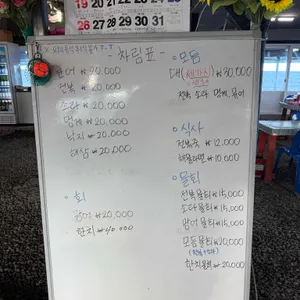 19 20 21 22 23 24 25
26 27 28 29 30 31
- 차림표 -
문어 ₩20,000
전복 ₩20,000
소라 ₩20,000
멍게 ₩20,000
낙지 ₩20,000
해삼 ₩20,000
· 회
광어 ₩20,000
한치 ₩40,000
· 모듬
₩30,000
전복 소라 멍게, 문어
· 식사
전복죽 ₩12,000
해물라면 ₩10,000
· 물회
전복물회 ₩15,000
소라물회 ₩15,000
문어물회 ₩15,000
모듬물회 ₩20,000
한치물회 ₩20,000